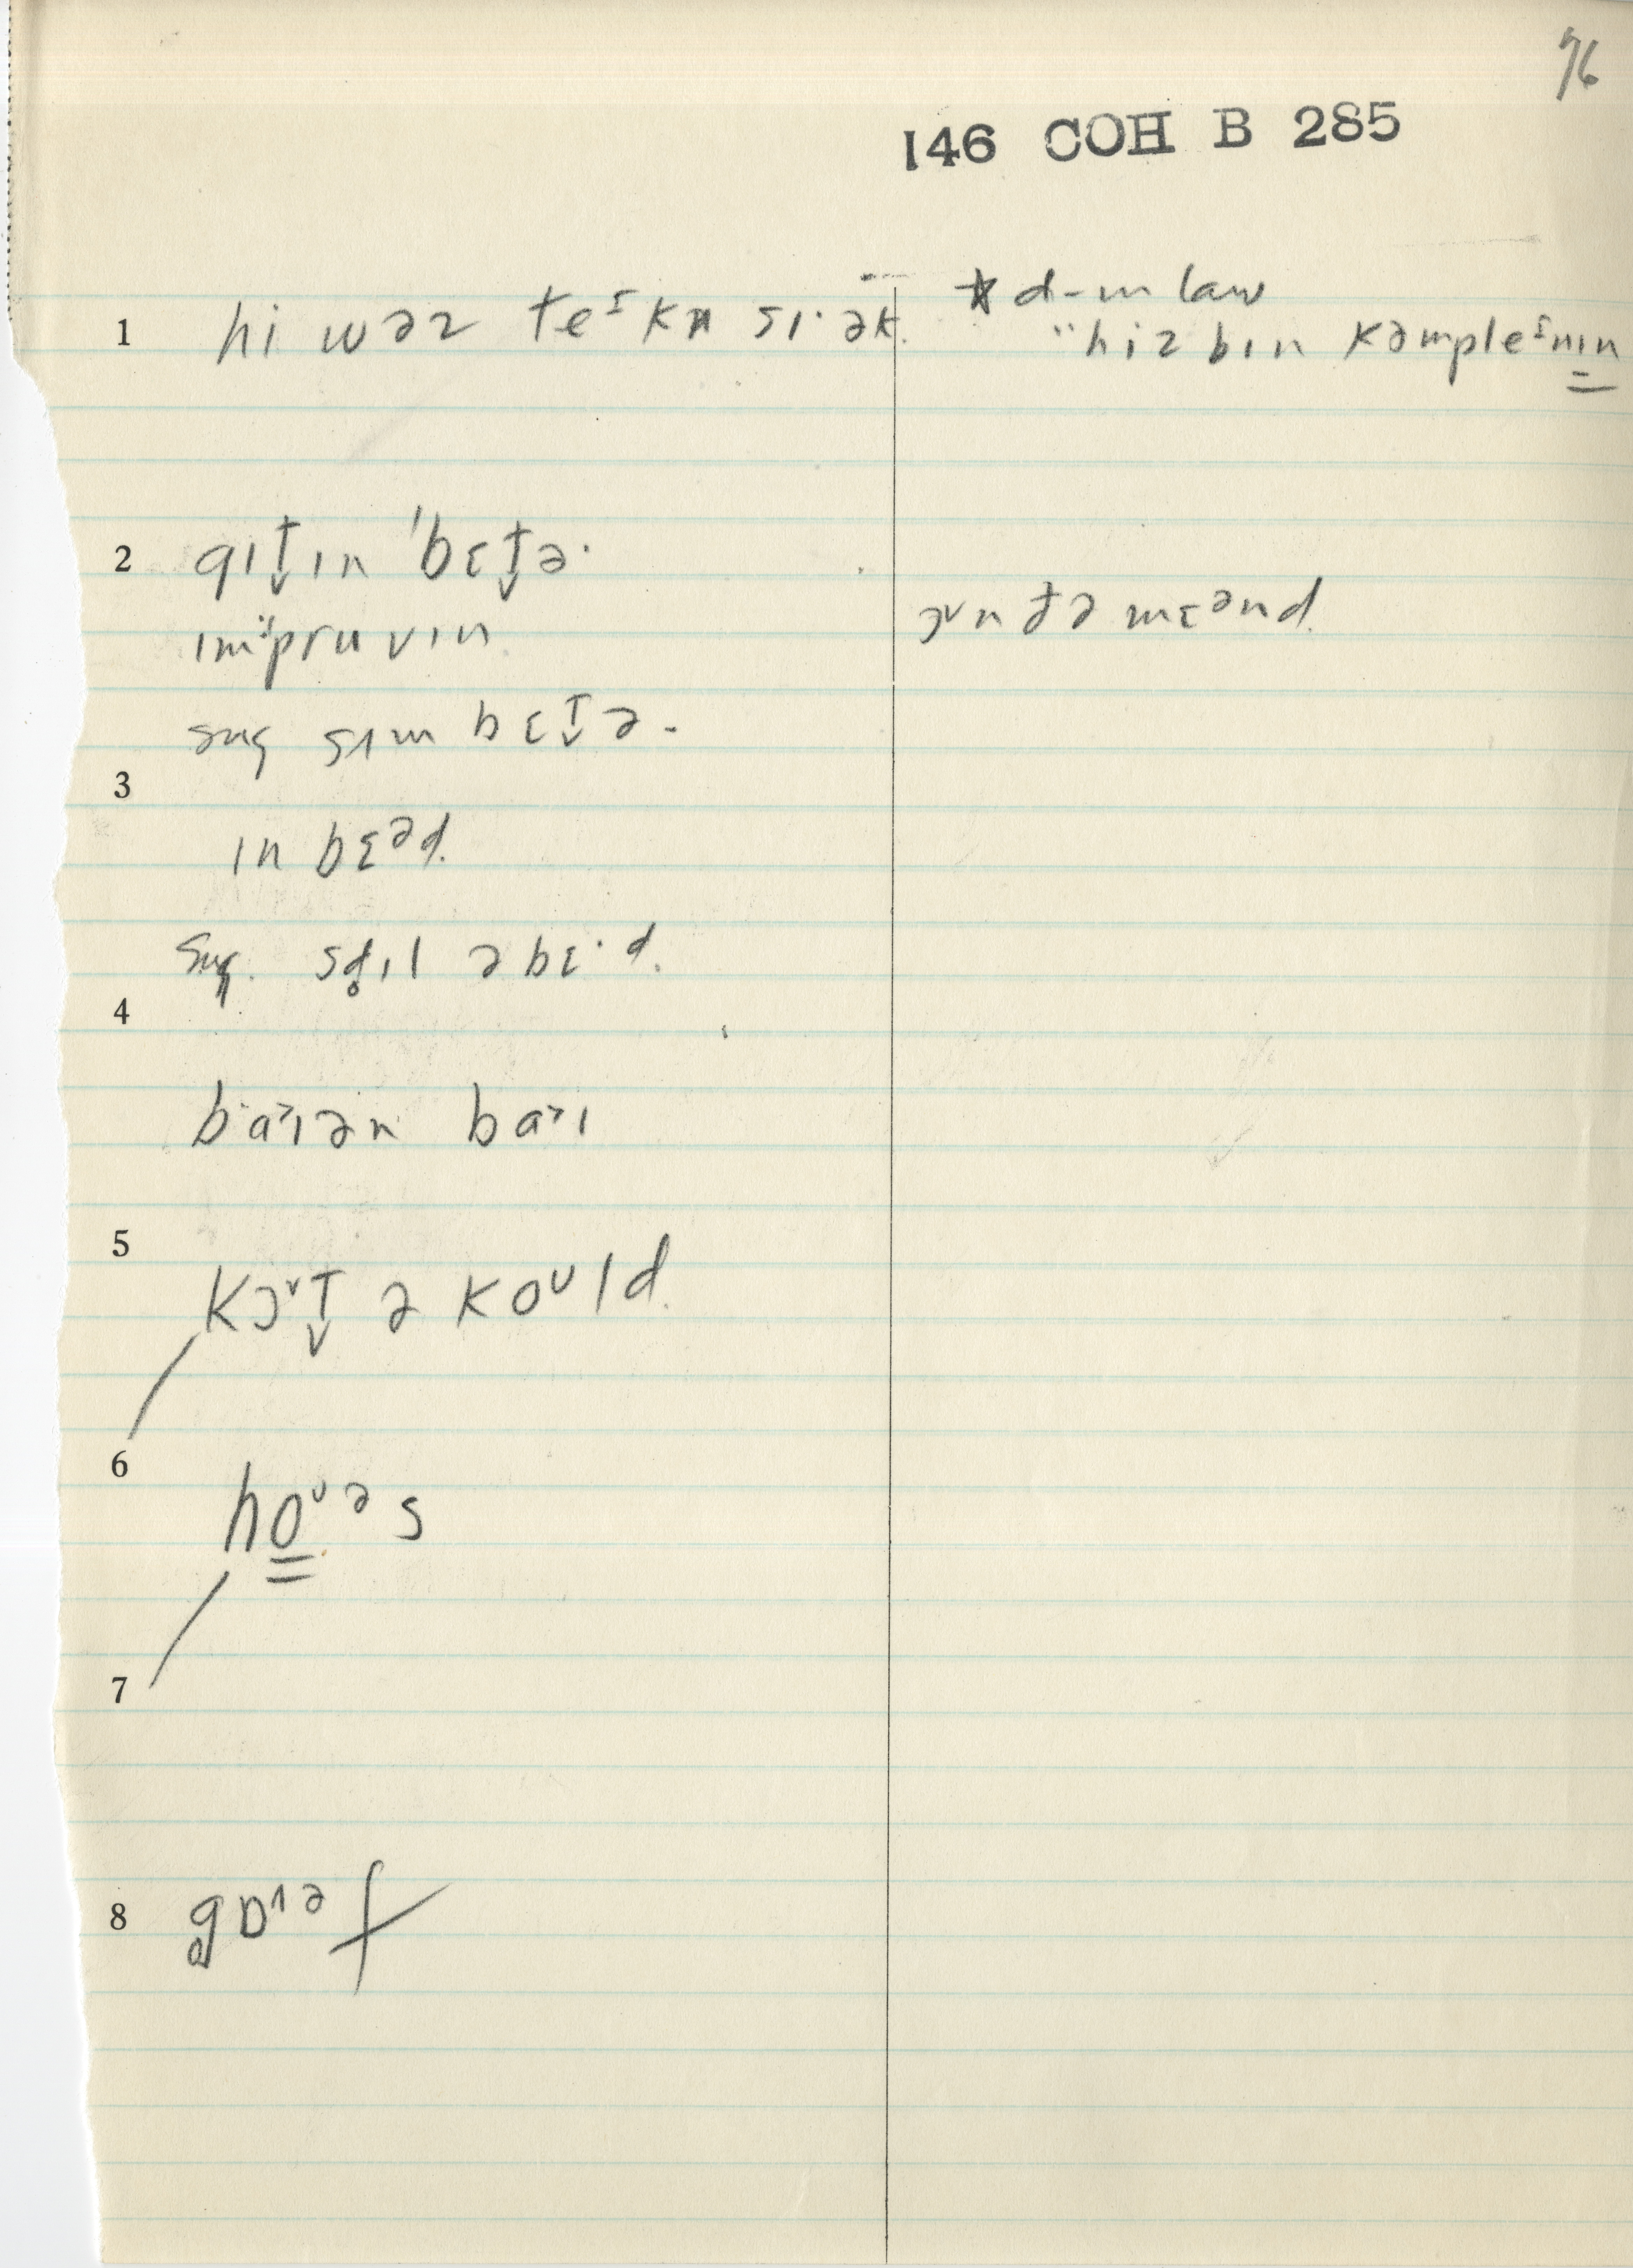 76
146 COH B 285
1 hi wəz teᶦkn sɪ·ək. * d-in law
"hiz bɪn kəmpleᶦnɪn
2 gɪt̬ɪn 'bɛt̬ə·
ɪm"pruvɪn
ɔᵛn ðə mɛᵊnd.
sug sɪm bɛt̬ə -
3
ɪn bɛᵊd.
sug. sd̥ɪl əbɛ·d.
4
b·a˃ɪən ba˃ɪ
5
kɔᵛt̬ ə koᵁld.
6
hoᵁəs
7
8 g̥ɒᶦəf